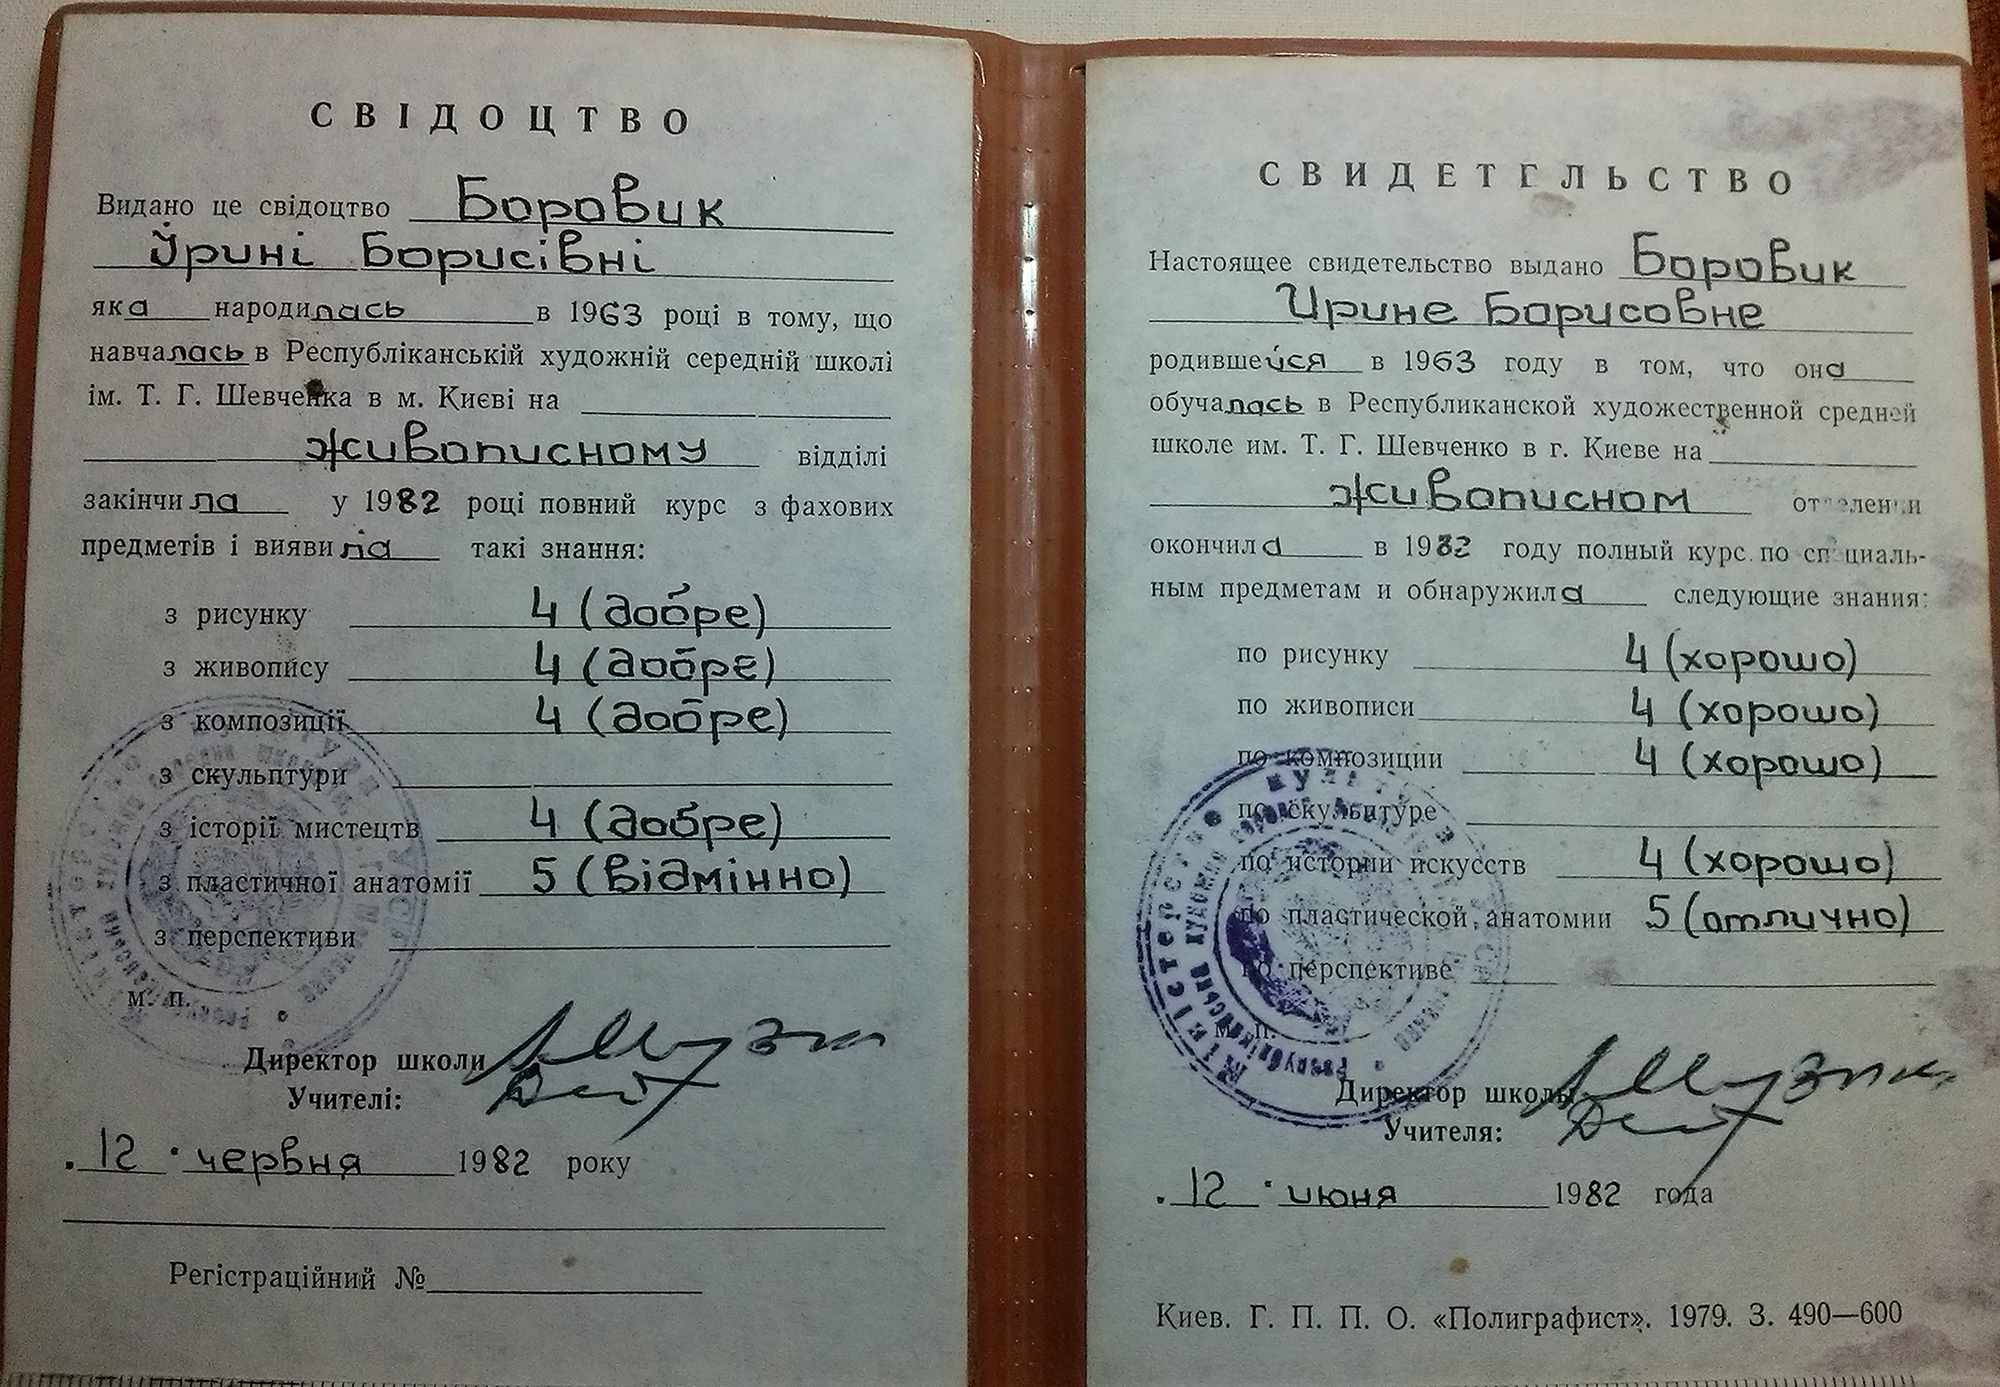 СВІДОЦТВО
Видано це свідоцтво Боровик
Ірині Борисівні
яка народилась в 1963 році в тому, що
навчалась в Республіканській художній середній школі
ім. Т. Г. Шевченка в м. Києві на
живописному відділі
закінчила у 1982 році повний курс з фахових
предметів і виявила такі знання:
з рисунку 4 (добре)
з живопису 4 (добре)
з композиції 4 (добре)
з скульптури
з історії мистецтв 4 (добре)
з пластичної анатомії 5 (відмінно)
з перспективи
м. п.
Директор школи
Учителі:
12 червня 1982 року
Регістраційний №
СВИДЕТЕЛЬСТВО
Настоящее свидетельство выдано Боровик
Ирине Борисовне
родившейся в 1963 году в том, что она
обучалась в Республиканской художественной средней
школе им. Т. Г. Шевченко в г. Киеве на
живописном отделении
окончила в 1982 году полный курс по специаль-
ным предметам и обнаружила следующие знания:
по рисунку 4 (хорошо)
по живописи 4 (хорошо)
по композиции 4 (хорошо)
по скульптуре
по истории искусств 4 (хорошо)
по пластической анатомии 5 (отлично)
по перспективе
м. п.
Директор школы
Учителя:
12 июня 1982 года
Киев. Г. П. П. О. «Полиграфист». 1979. З. 490—600